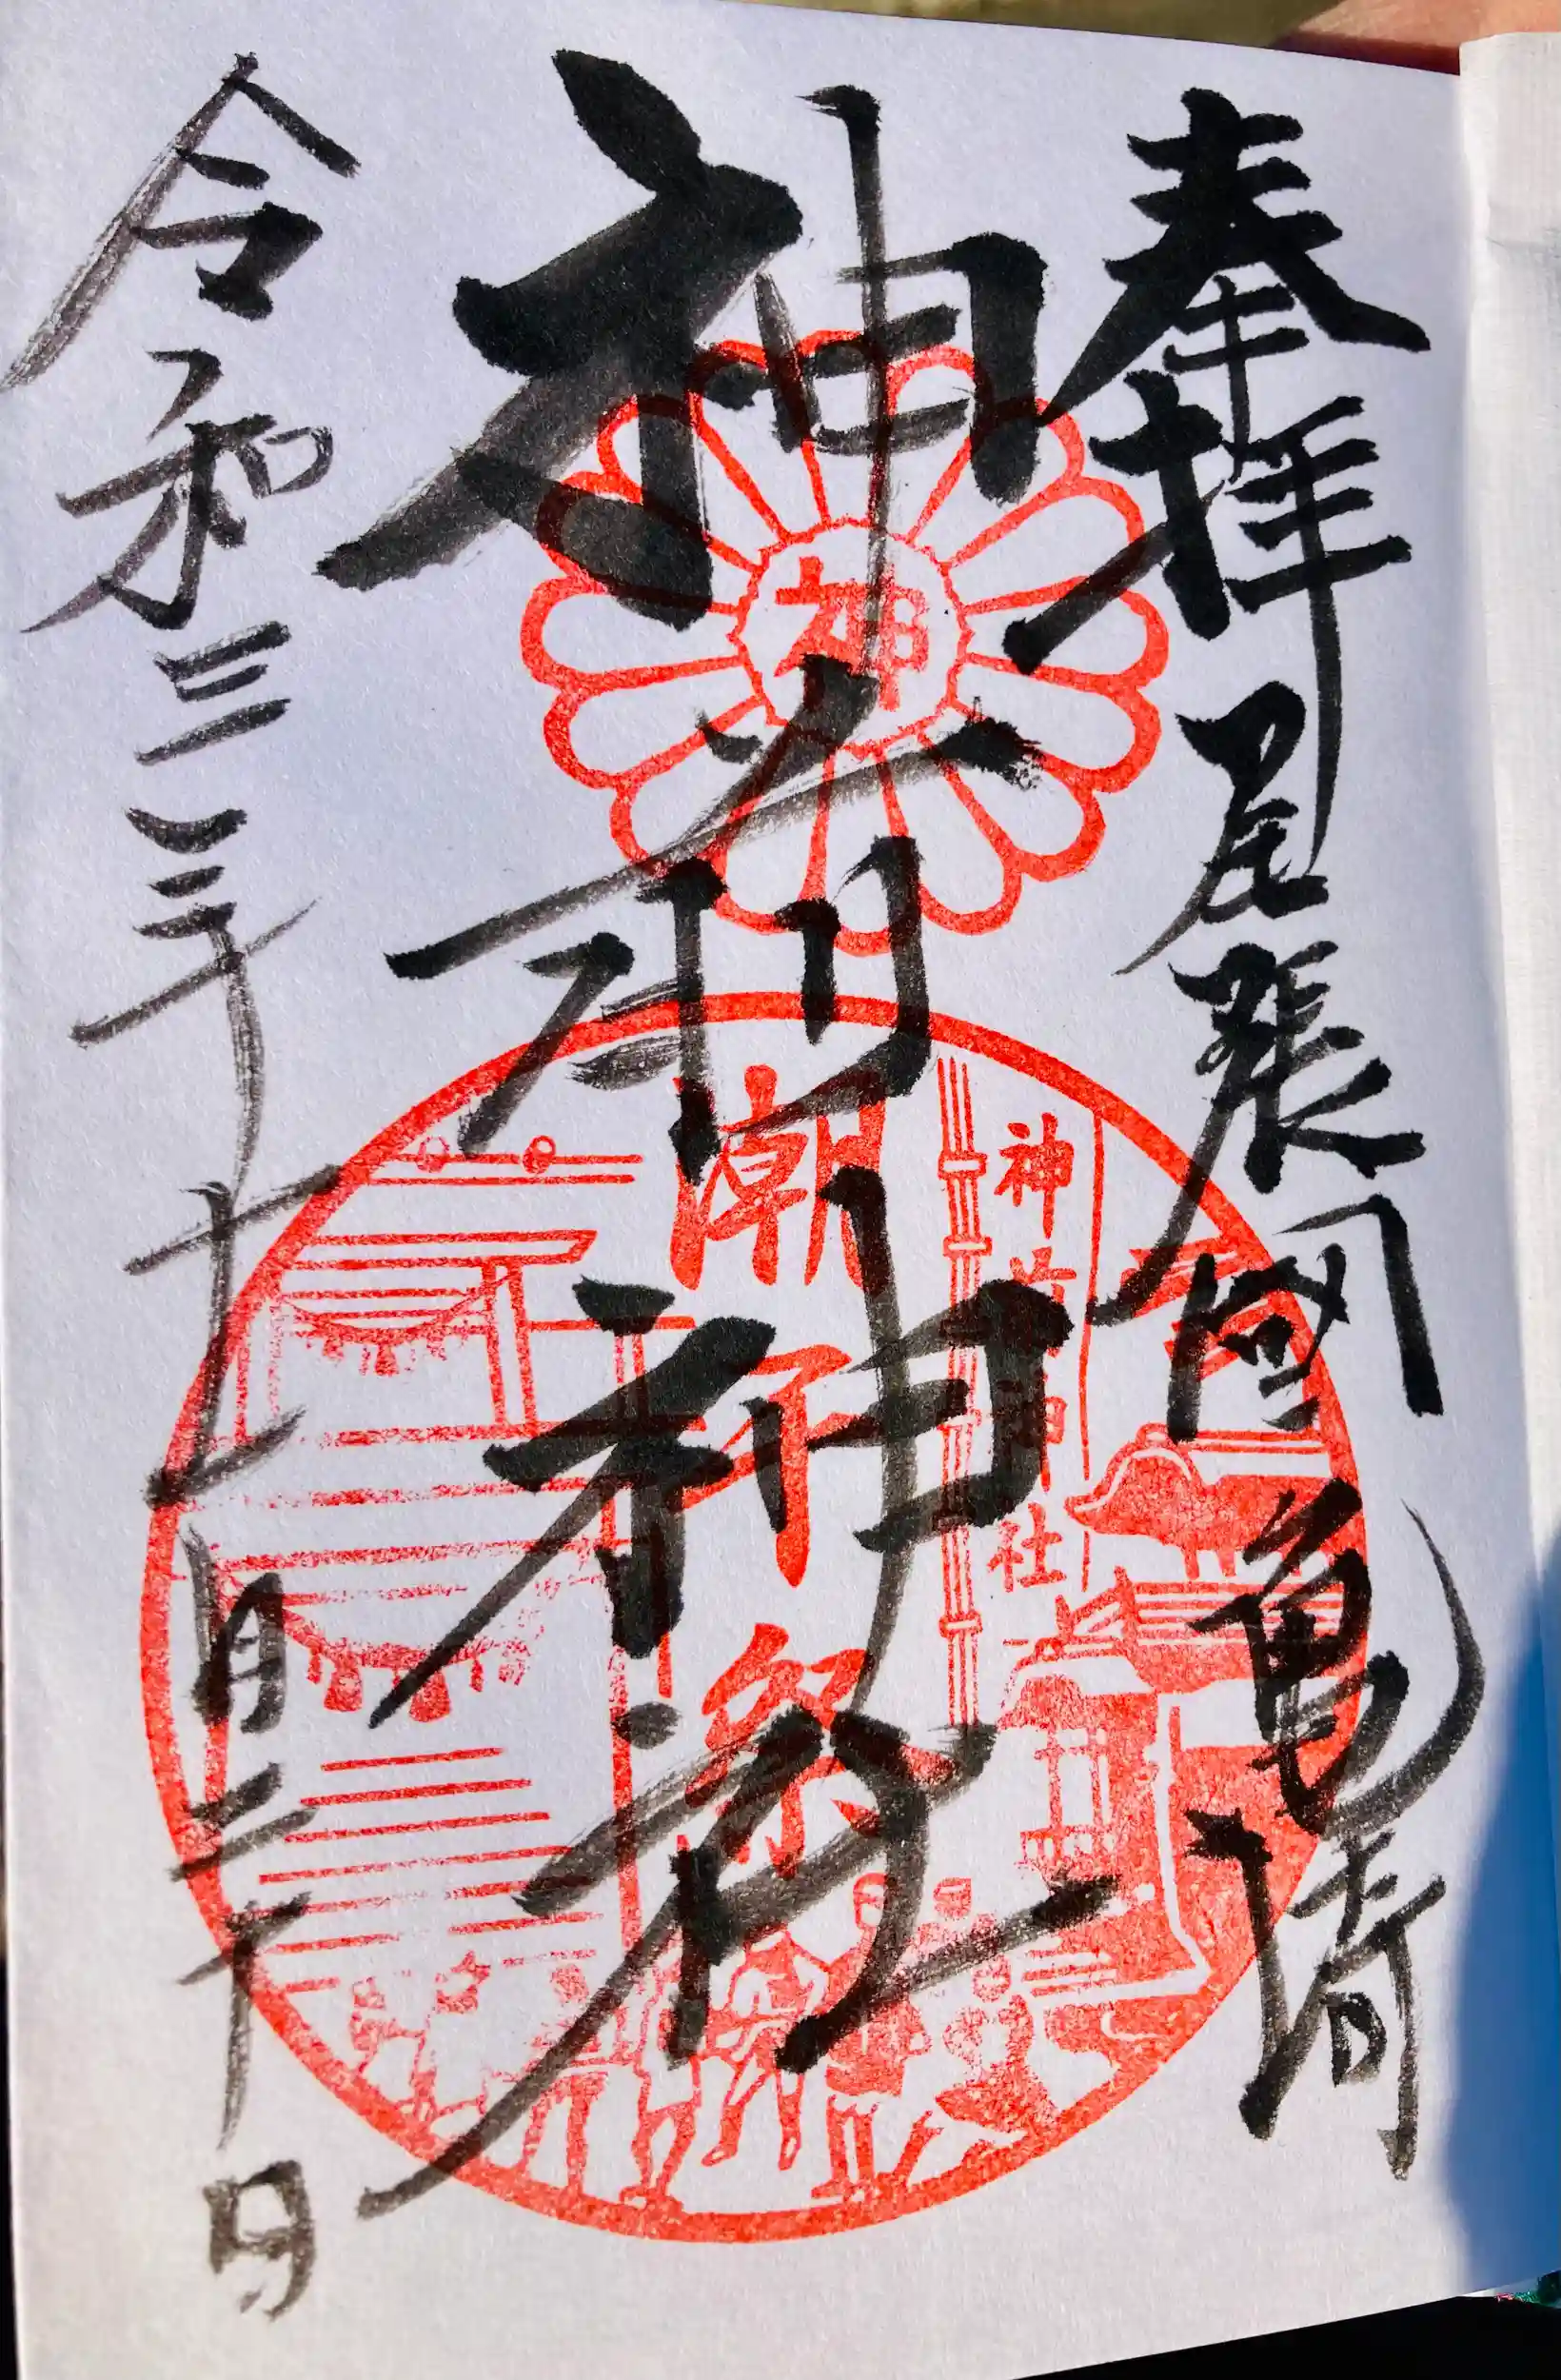 奉拝 尾張國 亀崎
神前神社
令和三年十一月二十日
神
神前神社
潮干祭